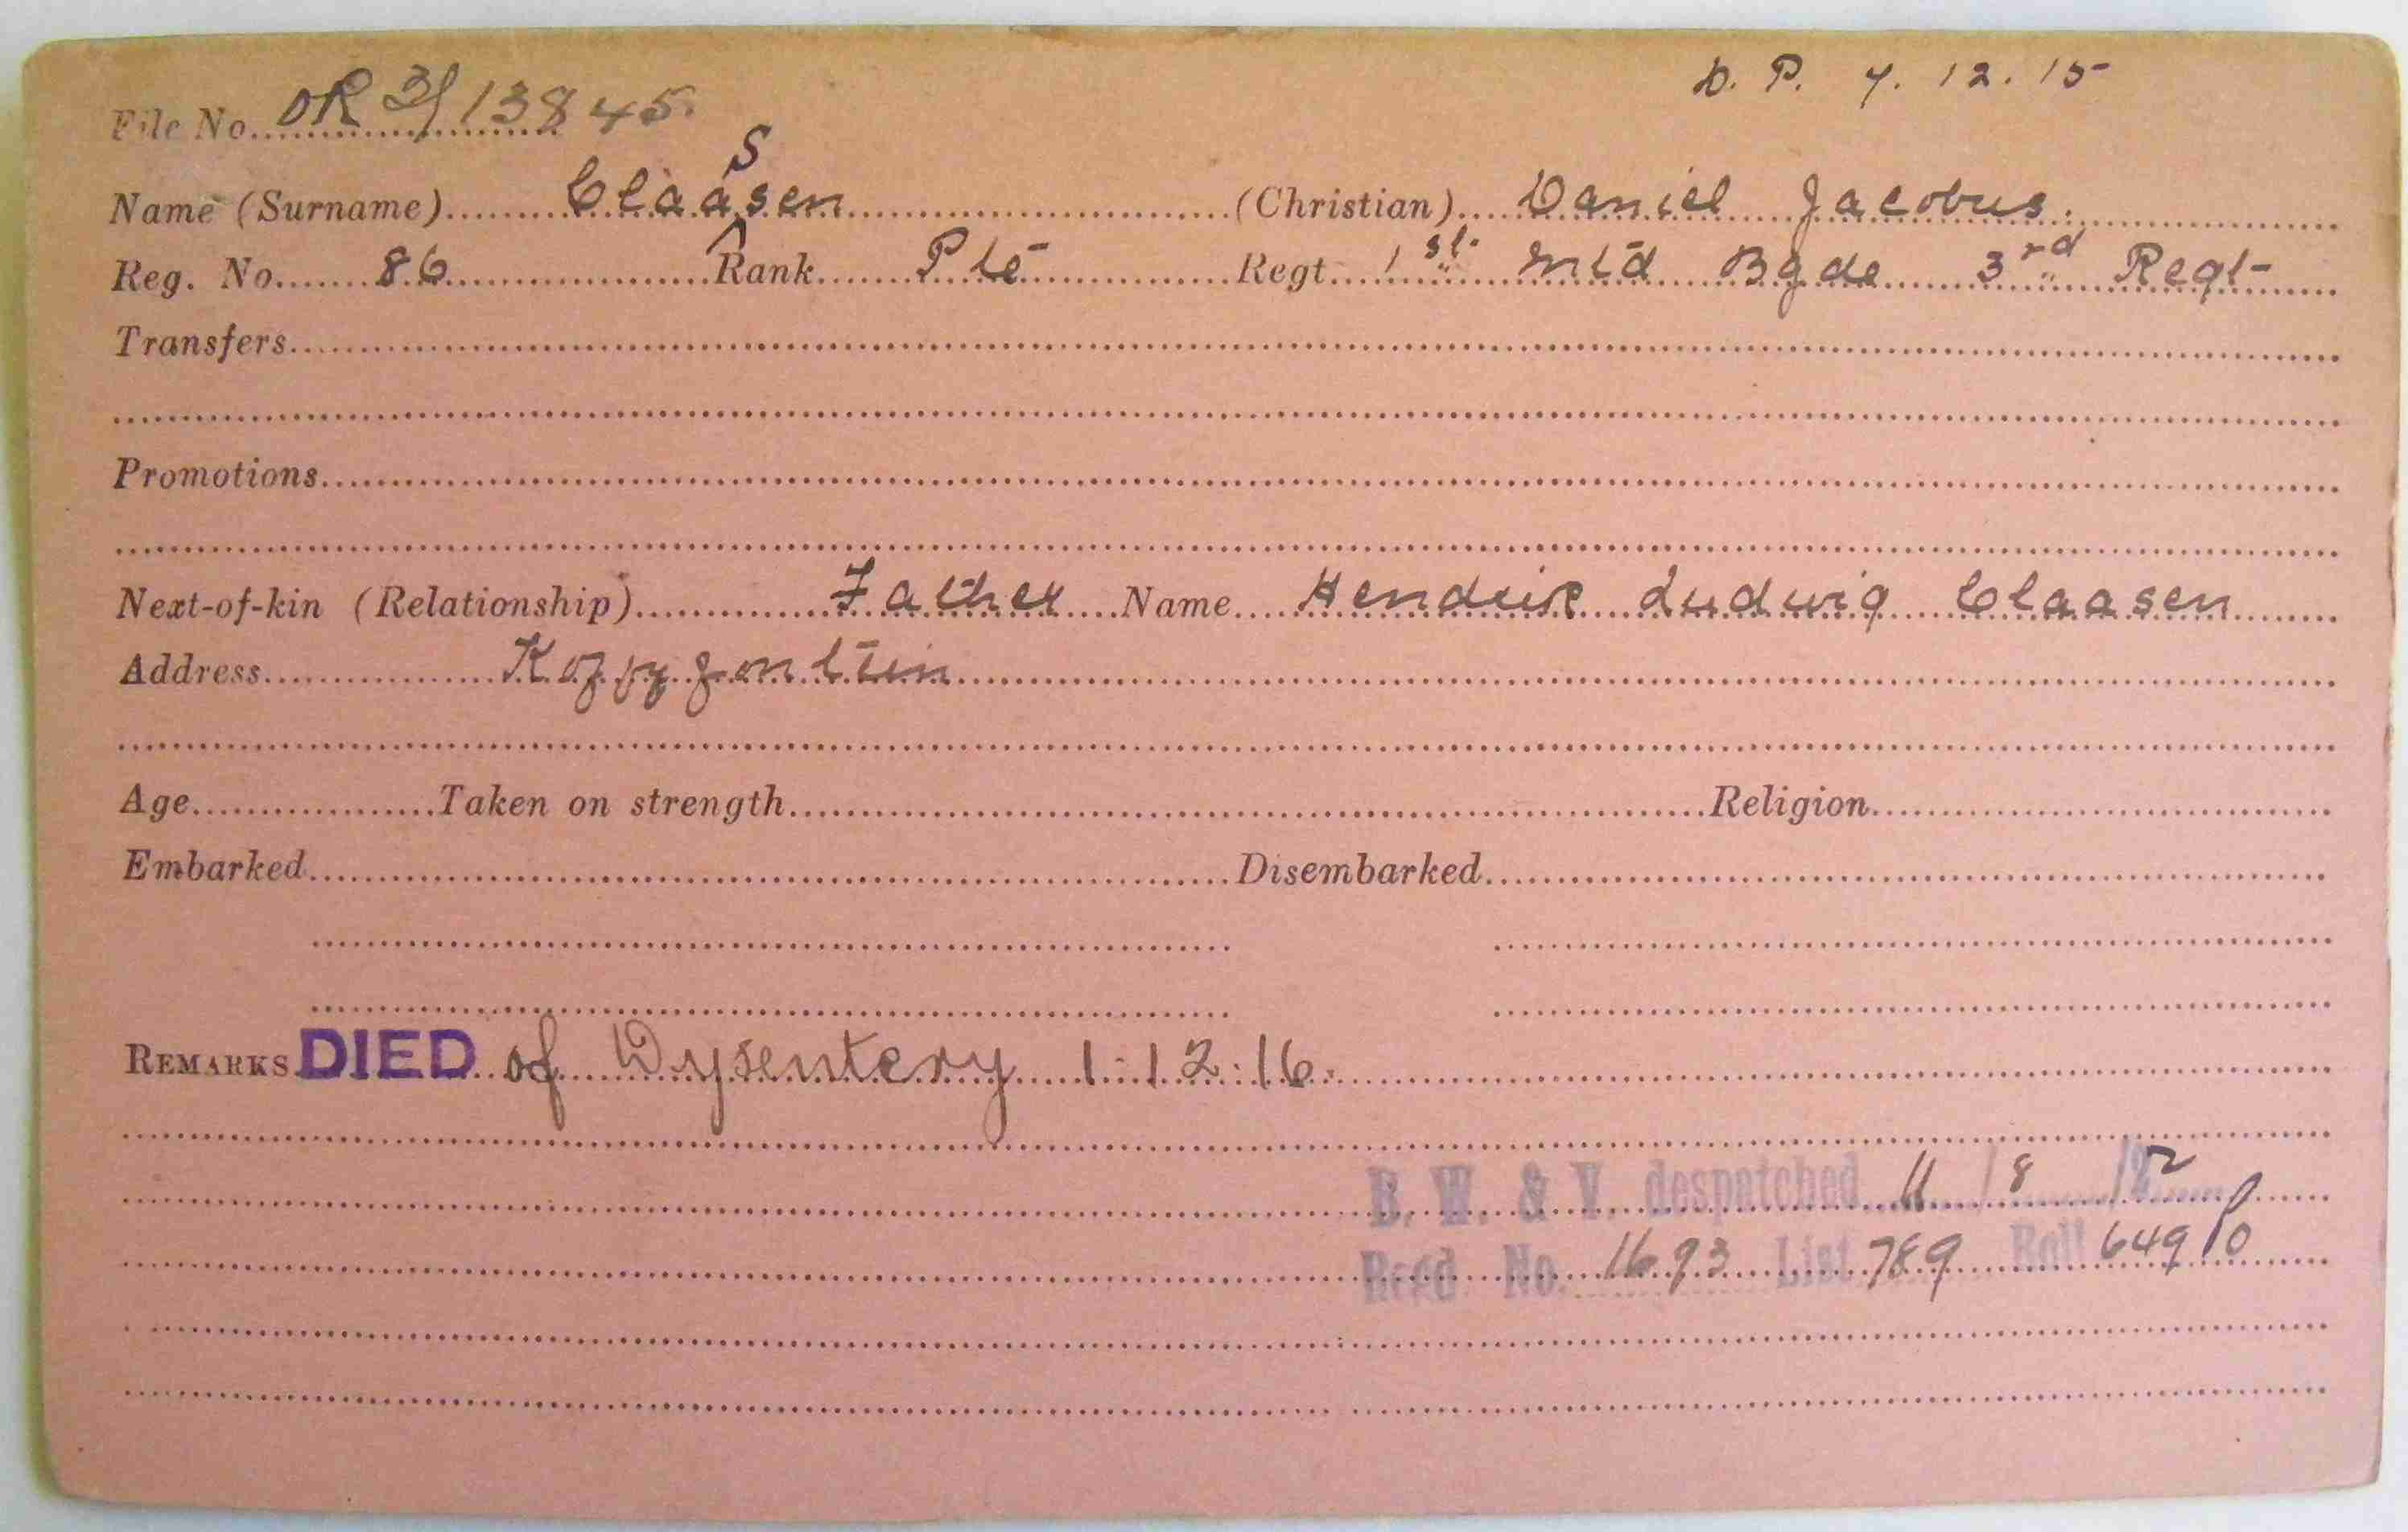 D. P. 7. 12. 15
File No. DR 3/13845.
Name (Surname) Claassen (Christian) Daniel Jacobus.
Reg. No. 86 Rank Pte Regt. 1st Mtd Bgde 3rd Regt
Transfers
Promotions
Next-of-kin (Relationship) Father Name Hendrik Ludwig Claasen
Address Kopjyfontein
Age Taken on strength Religion
Embarked Disembarked
REMARKS DIED of Dysentery 1.12.16.
B. W. & V. despatched 11/8/22
Recd No. 1693 List 789 Roll 649